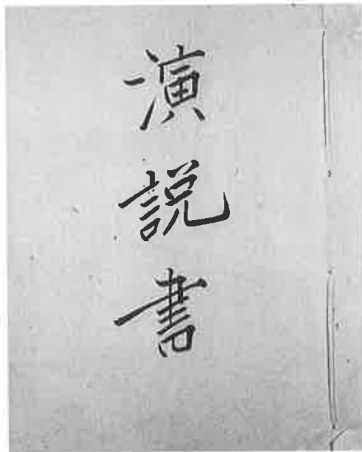 演説書